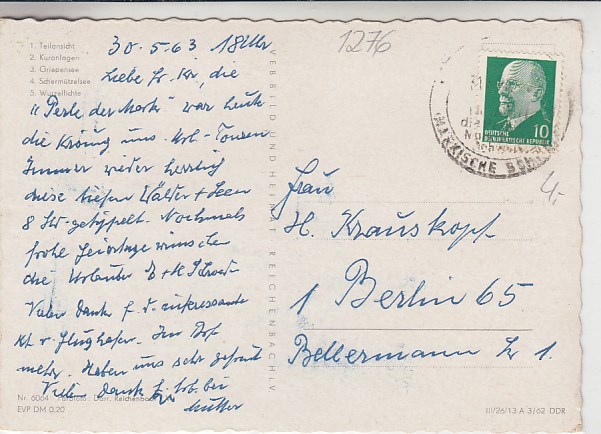 1. Teilansicht
2. Kuranlagen
3. Griepensee
4. Schermützelsee
5. Wurzelfichte
30.5.63 18 Uhr
Liebe Fr. Kr., die
"Perle der Mark" war heute
die Krönung uns. Url-Touren
Immer wieder herrlich
diese tiefen Wälder + Seen
8 Std. getippelt. Nochmals
frohe Feiertage wünschen
die Urlauber E + K
Vielen Dank f. d. interessante
Kt. v. Flughafen. Im Brf.
mehr. Haben uns sehr gefreut
Vielen Dank f. bei
Mutter
Nr. 6064 Farbfoto: Dörr, Reichenbach
EVP DM 0,20
VEB BILD UND HEIMAT REICHENBACH I. V.
1276
DEUTSCHE
DEMOKRATISCHE REPUBLIK
10
MÄRKISCHE
4,-
Frau
H. Krauskopf
1 Berlin 65
Bellermann Str 1.
III/26/13 A 3/62 DDR